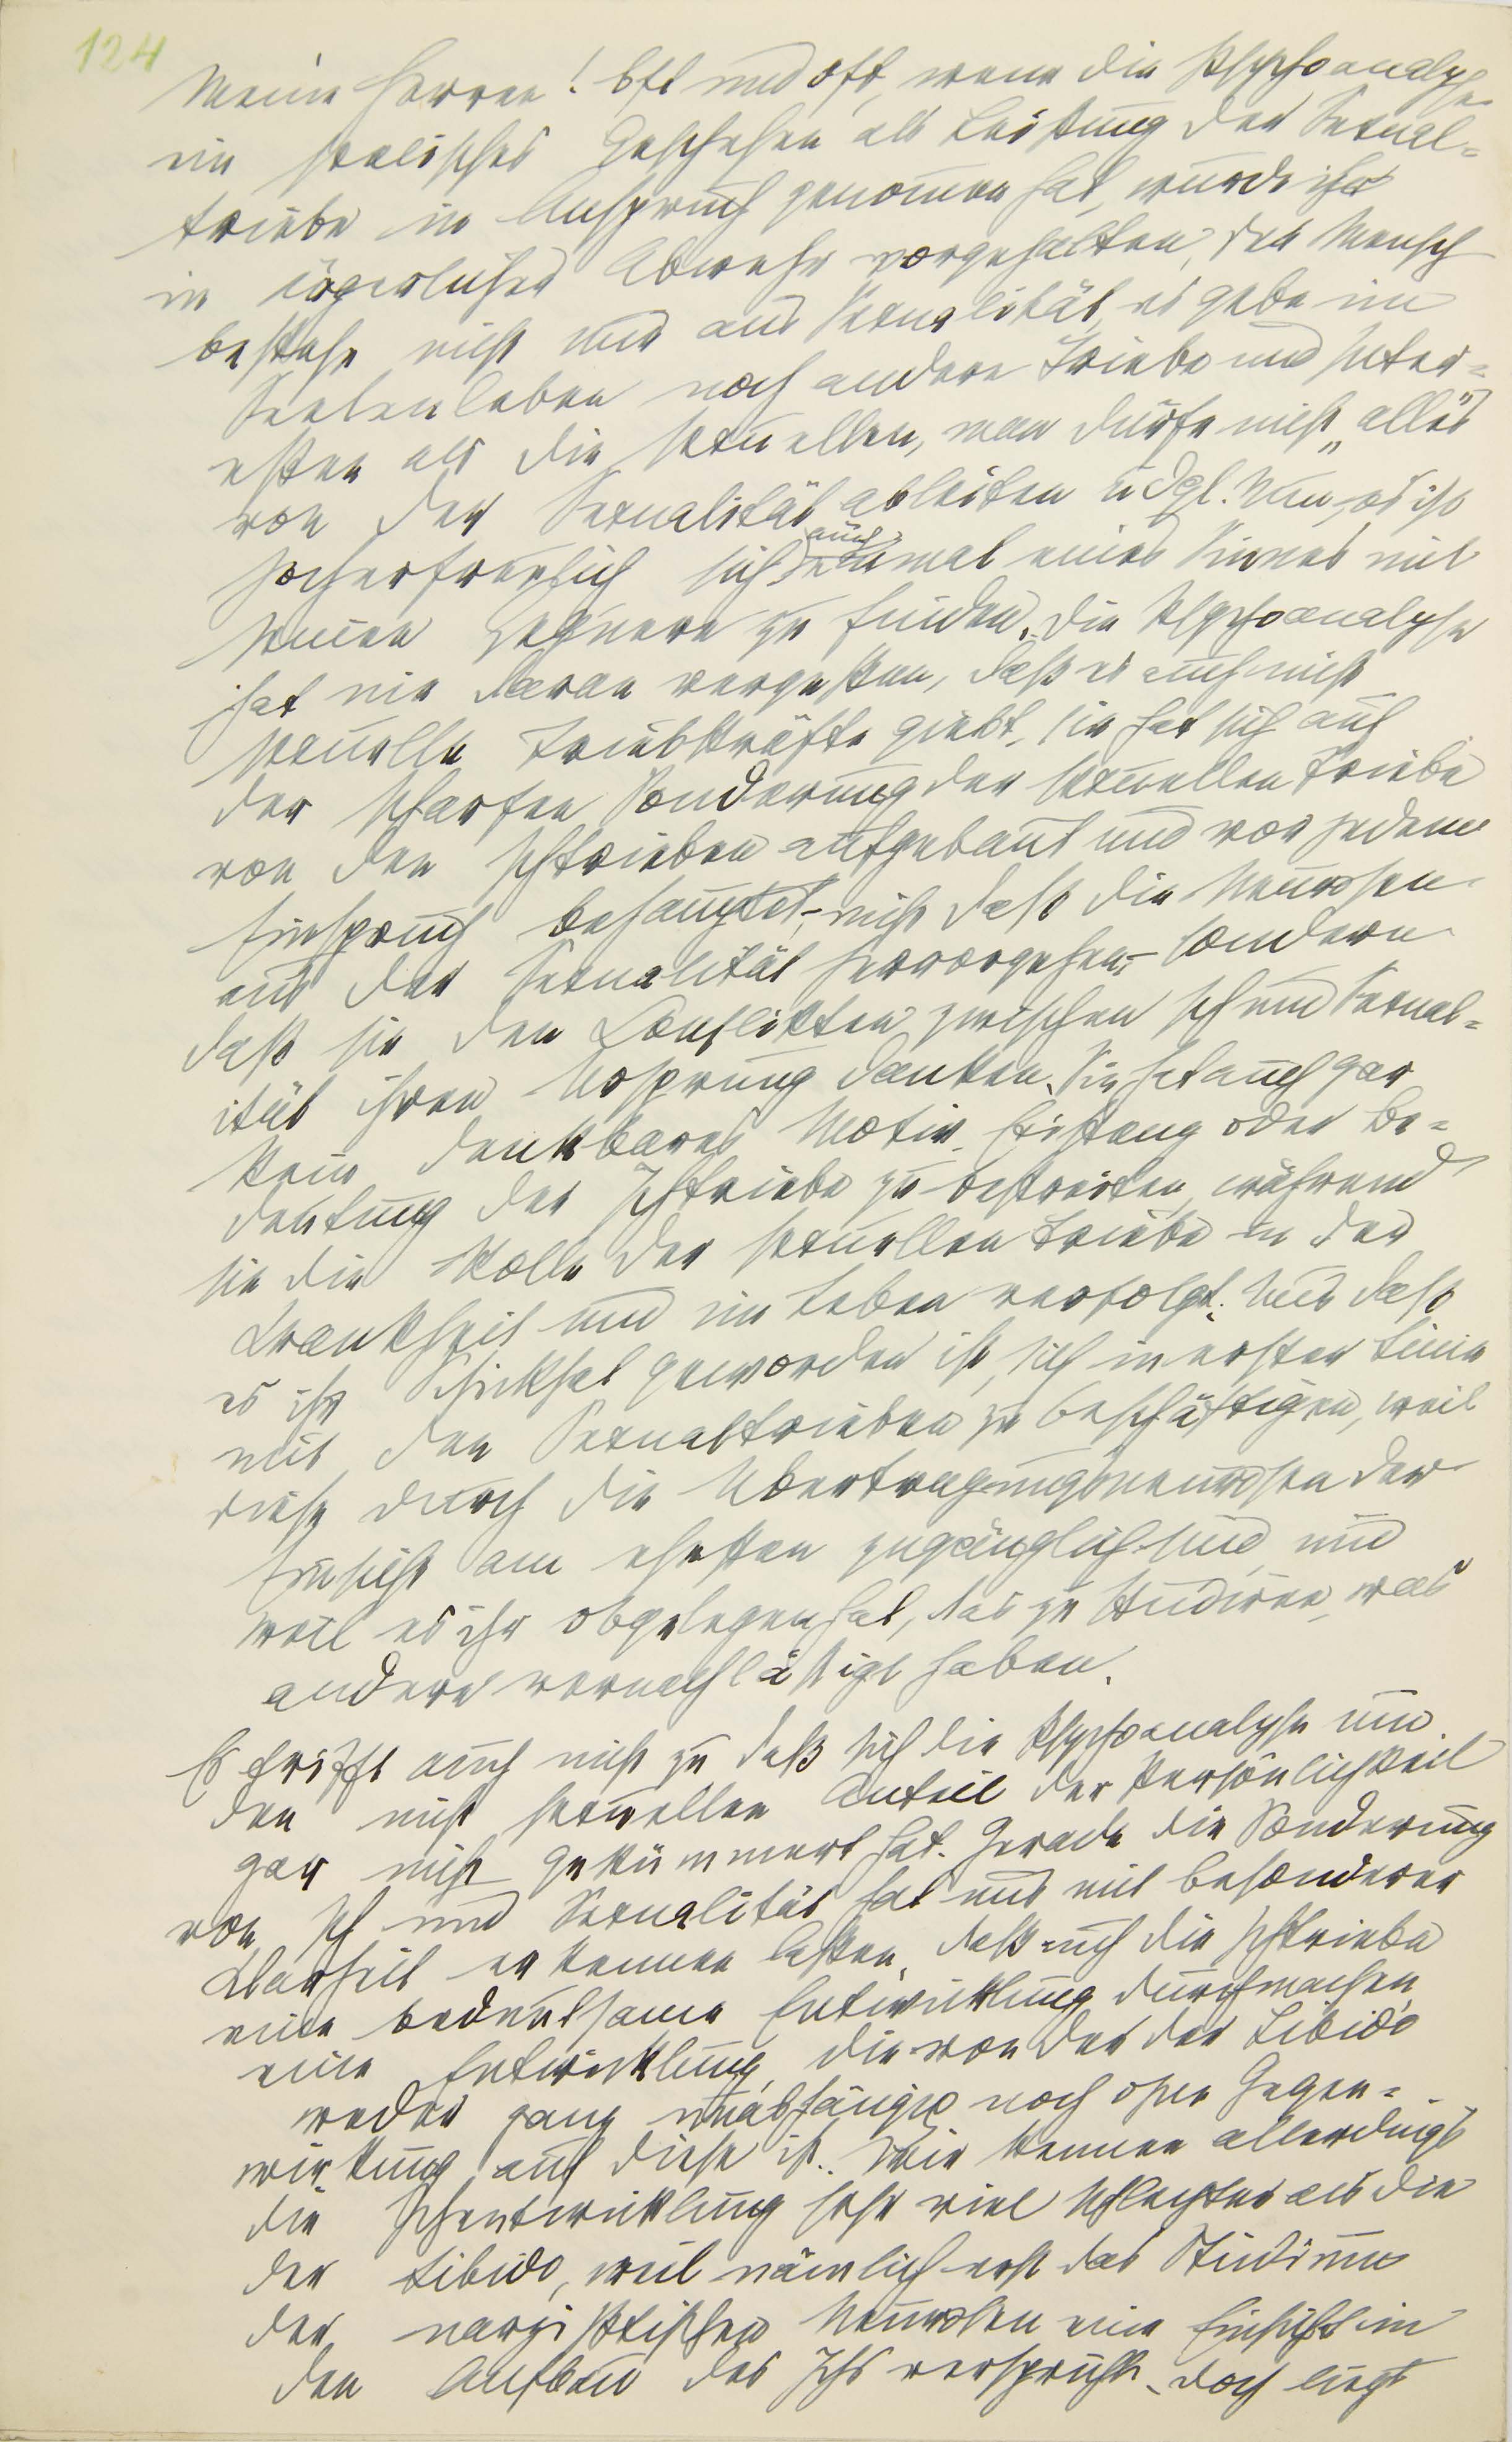 124
Meine Herren! Oft und oft, wenn die Psychoanalyse
ein seelisches Geschehen als Leistung der Sexual-
triebe in Anspruch genommen hat, wurde ihr
in ärgerlicher Abwehr vorgehalten, der Mensch
bestehe nicht nur aus Sexualität, es gebe im
Seelenleben noch andere Triebe und Inter-
essen als die sexuellen, man dürfe nicht „alles“
von der Sexualität ableiten u dgl. Nun, es ist
hocherfreulich sich auch einmal eines Sinnes mit
seinen Gegnern zu finden. Die Psychoanalyse
hat nie daran vergessen, daß es auch nicht
sexuelle Triebkräfte giebt, sie hat sich auf
der scharfen Sonderung der sexuellen Triebe
von den Ichtrieben aufgebaut und vor jedem
Einspruch behauptet, – nicht daß die Neurosen
aus der Sexualität hervorgehen, – sondern
daß sie den Conflikten zwischen Ich und Sexual-
ität ihren Ursprung danken. Sie hat auch gar
kein denkbares Motiv Existenz oder Be-
deutung der Ichtriebe zu bestreiten, während
sie die Rolle der sexuellen Triebe in der
Krankheit und im Leben verfolgt. Nur daß
es ihr Schicksal geworden ist, sich in erster Linie
mit den Sexualtrieben zu beschäftigen, weil
diese durch die Übertragungsneurosen der
Einsicht am ehesten zugänglich sind und
weil es ihr obgelegen hat, das zu studiren, was
andere vernachlässigt haben.
Es trifft auch nicht zu daß sich die Psychoanalyse um
den nicht sexuellen Anteil der Persönlichkeit
gar nicht gekümmert hat. Gerade die Sonderung
von Ich und Sexualität hat uns mit besonderer
Klarheit erkennen lassen, daß auch die Ichtriebe
eine bedeutsame Entwicklung durchmachen
eine Entwicklung, die von der der Libido
weder ganz unabhängig noch ohne Gegen-
wirkung auf diese ist. Wir kennen allerdings
die Ichentwicklung sehr viel schlechter als die
der Libido, weil nämlich erst das Studium
der narzißtischen Neurosen eine Einsicht in
den Aufbau des Ichs verspricht. Doch liegt